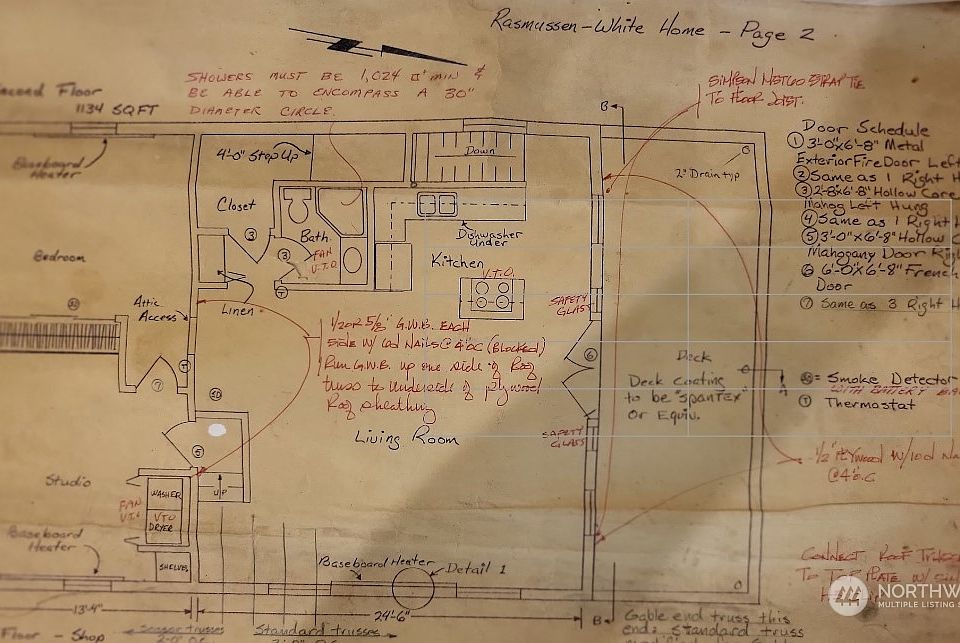 Rasmussen-White Home - Page 2
Floor
1134 SQFT
SHOWERS MUST BE 1,024 □" MIN &
BE ABLE TO ENCOMPASS A 30"
DIAMETER CIRCLE.
SIMPSON STRAP TIE
TO FLOOR JOIST.
B
Door Schedule
① 3'-0"x6'-8" Metal
Exterior Fire Door Left
② Same as 1 Right H
③ 2'-8"x6'-8" Hollow Core
Mahog Left Hung
④ Same as 1 Right
⑤ 3'-0"x6'-8" Hollow
Mahogany Door Right
⑥ 6'-0"x6'-8" French
Door
⑦ Same as 3 Right H
Baseboard
Heater
4'-0" Step Up
Down
2" Drain typ
Closet
Bath
FAN
V.T.O.
3
3
Dishwasher
Under
Kitchen
V.T.O.
Bedroom
Linen
T
Attic
Access
SAFETY
GLASS
1/2 OR 5/8" G.W.B. EACH
SIDE W/ 6d NAILS @ 4"OC (BLOCKED)
Run G.W.B. up one side of Roof
truss to underside of plywood
Roof sheathing
6
7
T
SD
Deck
Deck coating
to be "spantex"
or Equiv.
A
SD = Smoke Detector
WITH BATTERY
T Thermostat
SAFETY
GLASS
Living Room
5
UP
1/2" PLYWOOD W/ 10d NA
@ 4" O.C
Studio
WASHER
FAN
V.T.O.
VTO
DRYER
Baseboard
Heater
SHELVES
Baseboard Heater
Detail 1
CONNECT ROOF TRUSSES
TO PLATE W/
13'-4"
24'-6"
B
Gable end truss this
end. Standard truss
Floor - Shop
trusses
Standard trusses
NORTHW
MULTIPLE LISTING S